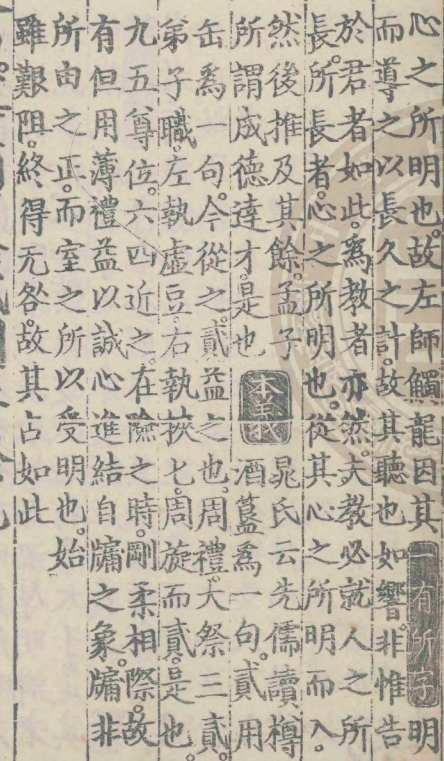 心之所明也。故左師觸龍因其一有所字明
而導之以長久之計。故其聽也如響。非惟告
於君者如此。爲教者亦然。夫教必就人之所
長。所長者。心之所明也。從其心之所明而入。
然後推及其餘。孟子
所謂成德達才。是也
本義
晁氏云先儒讀樽
酒簋爲一句。貳用
缶爲一句。今從之。貳益之也。周禮。大祭三貳。
弟子職。左執虛豆。右執挾匕。周旋而貳。是也。
九五尊位。六四近之。在險之時。剛柔相際。故
有但用薄禮益以誠心進結自牖之象。牖非
所由之正。而室之所以受明也。始
雖艱阻。終得无咎。故其占如此